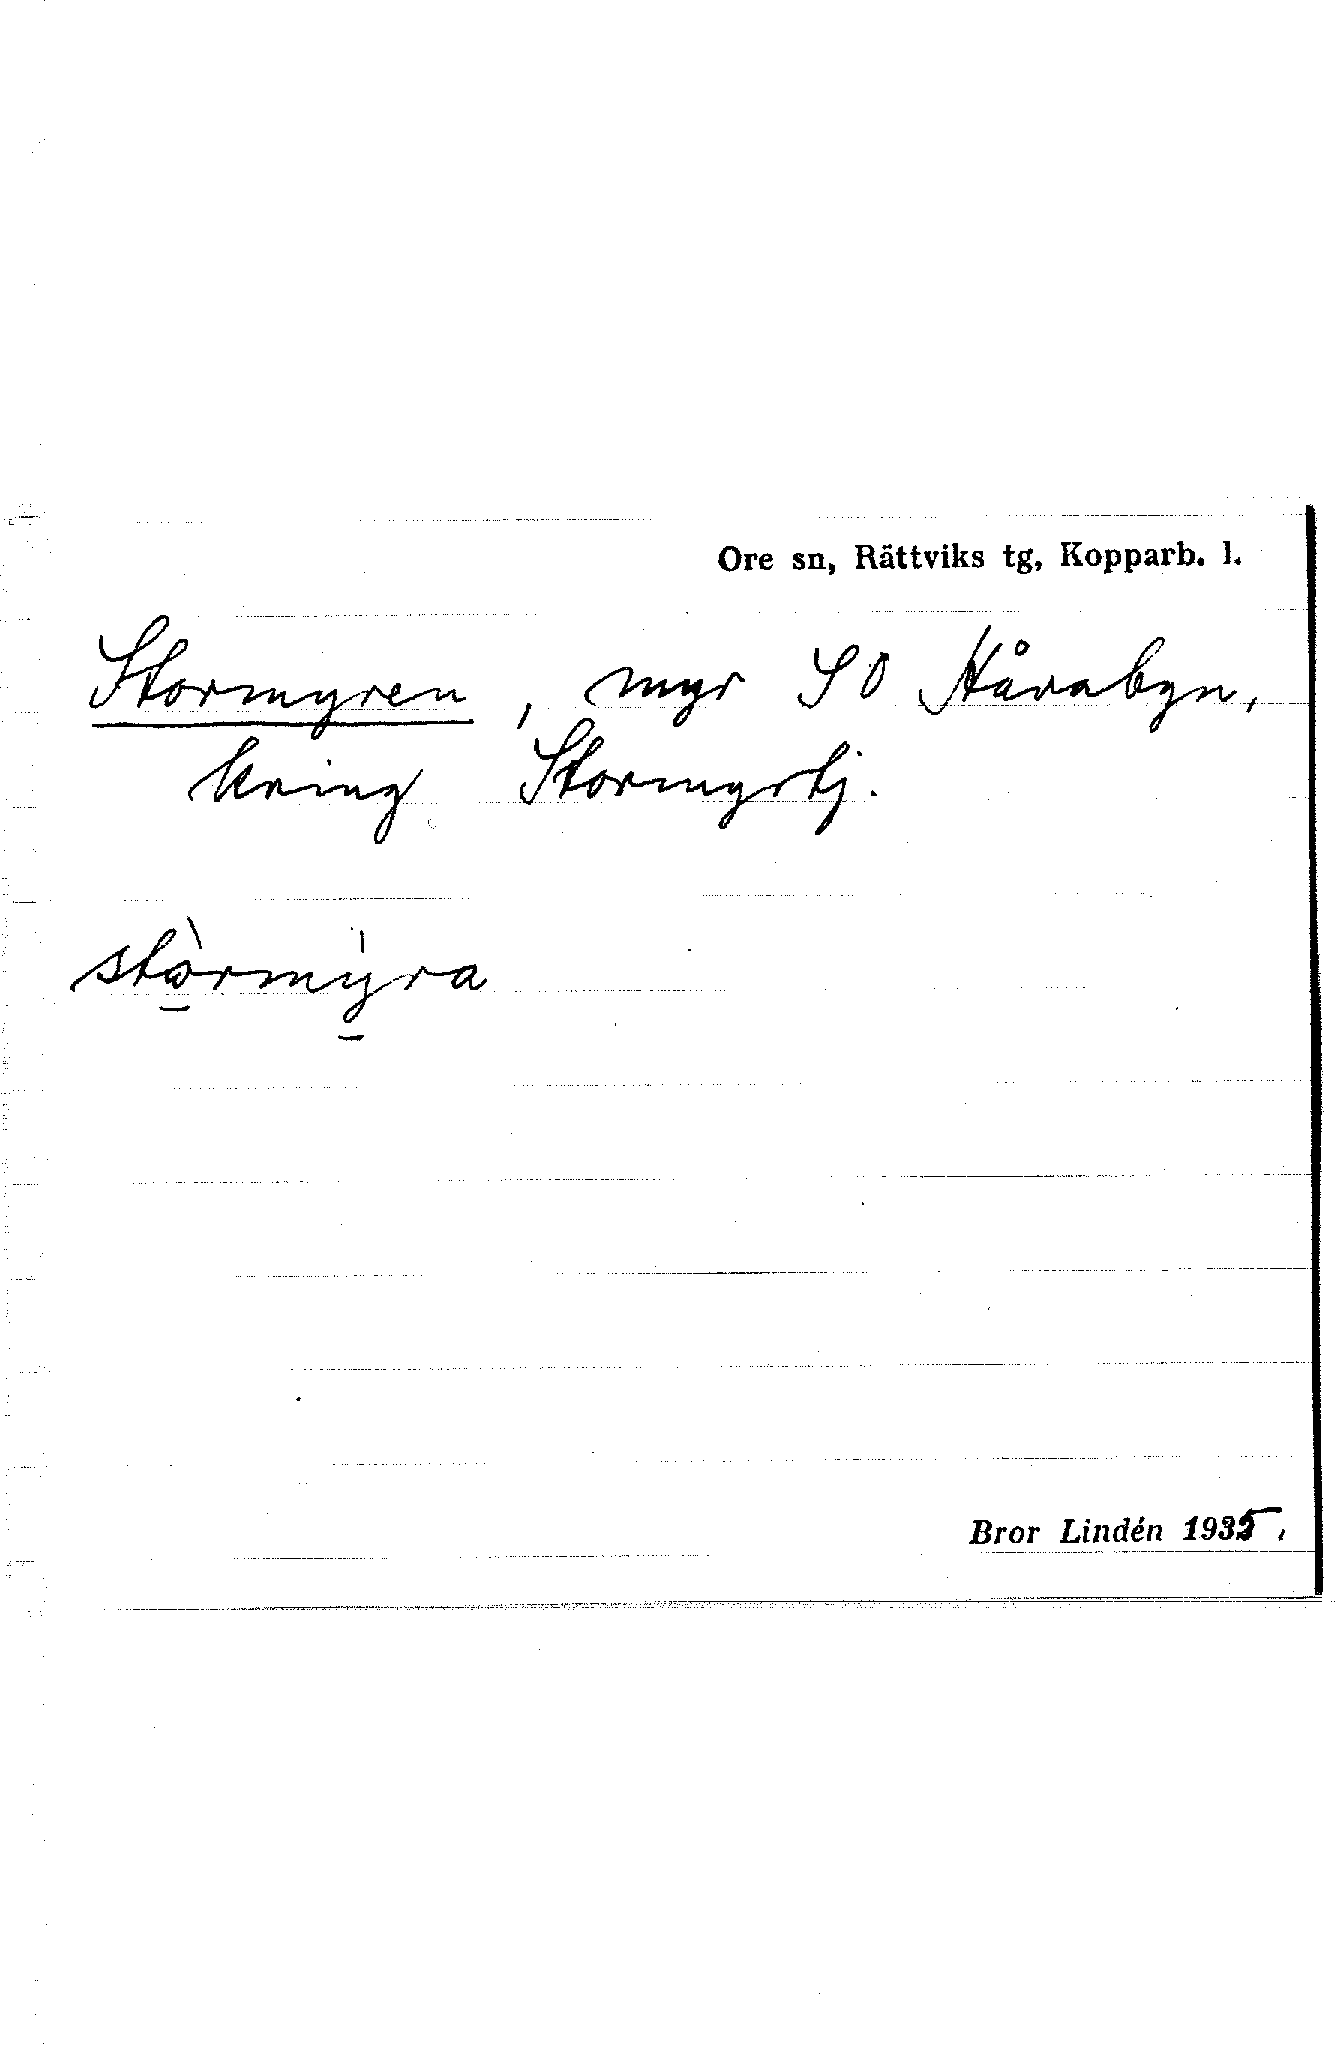 Ore sn, Rättviks tg, Kopparb. l.
Stormyren, myr SO Håvabyn,
kring Stormyrtj.
stò̠rmỳ̠ra
Bror Lindén 1935.